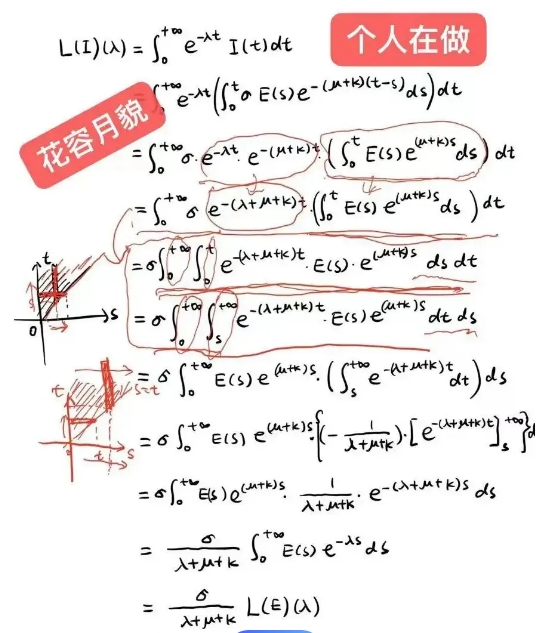 L(I)(λ) = ∫₀^{+∞} e^{-λt} I(t) dt
个人在做
= ∫₀^{+∞} e^{-λt} (∫₀^t σ E(s) e^{-(μ+k)(t-s)} ds) dt
花容月貌
= ∫₀^{+∞} σ · e^{-λt} · e^{-(μ+k)t} · (∫₀^t E(s) e^{(μ+k)s} ds) dt
= ∫₀^{+∞} σ e^{-(λ+μ+k)t} · (∫₀^t E(s) e^{(μ+k)s} ds) dt
= σ ∫₀^{+∞} ∫₀^t e^{-(λ+μ+k)t} · E(s) · e^{(μ+k)s} ds dt
t
s
0
= σ ∫₀^{+∞} ∫_s^{+∞} e^{-(λ+μ+k)t} · E(s) e^{(μ+k)s} dt ds
= σ ∫₀^{+∞} E(s) e^{(μ+k)s} · (∫_s^{+∞} e^{-(λ+μ+k)t} dt) ds
t
s=t
0
t
s
= σ ∫₀^{+∞} E(s) e^{(μ+k)s} · {(-1/(λ+μ+k)) · [e^{-(λ+μ+k)t}]_s^{+∞}} d
= σ ∫₀^{+∞} E(s) e^{(μ+k)s} · 1/(λ+μ+k) · e^{-(λ+μ+k)s} ds
= σ/(λ+μ+k) ∫₀^{+∞} E(s) e^{-λs} ds
= σ/(λ+μ+k) L(E)(λ)